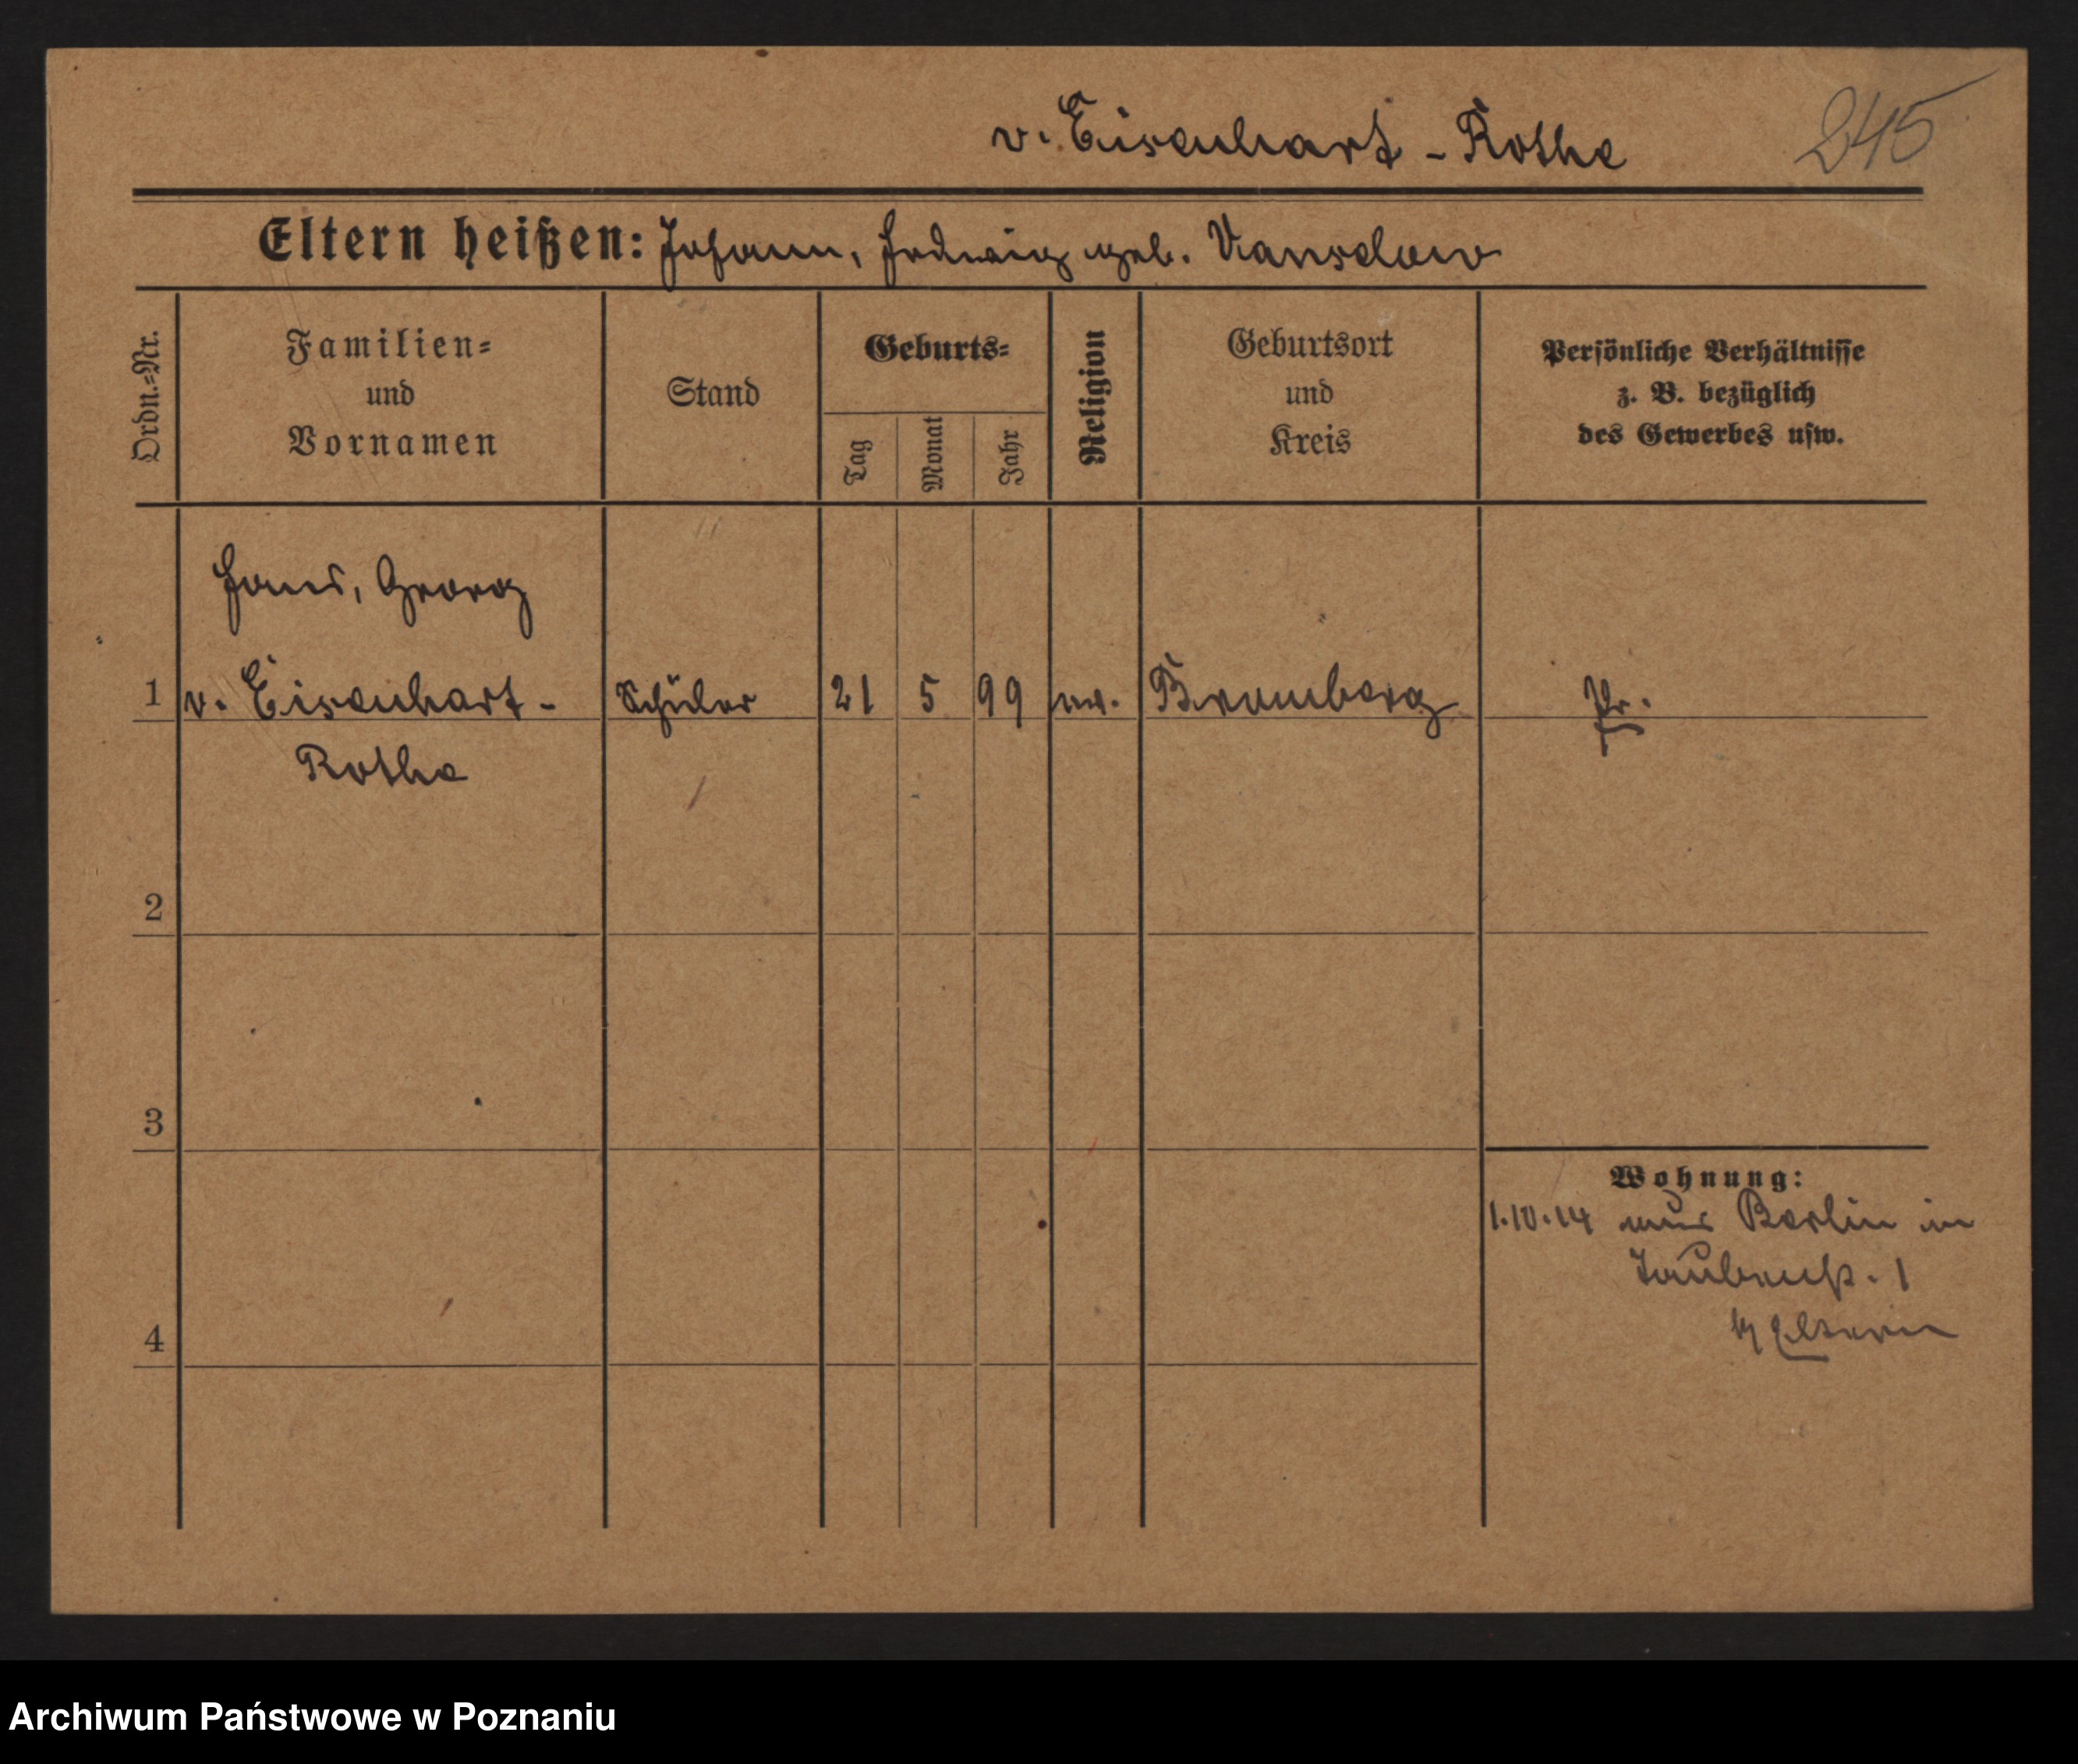 v. Eisenhart-Rothe
245
Eltern heißen: Johann, Hedwig geb. Vanselow
Ordn.-Nr.
Familien-
und
Vornamen
Stand
Geburts-
Tag
Monat
Jahr
Religion
Geburtsort
und
Kreis
Persönliche Verhältnisse
z. B. bezüglich
des Gewerbes usw.
Hans, Georg
1 v. Eisenhart- Schüler 21 5 99 ev. Bromberg Pr.
Rothe
2
3
4
Wohnung:
1.10.14 aus Berlin in
Taubenstr. 1
b/ Eltern
Archiwum Państwowe w Poznaniu